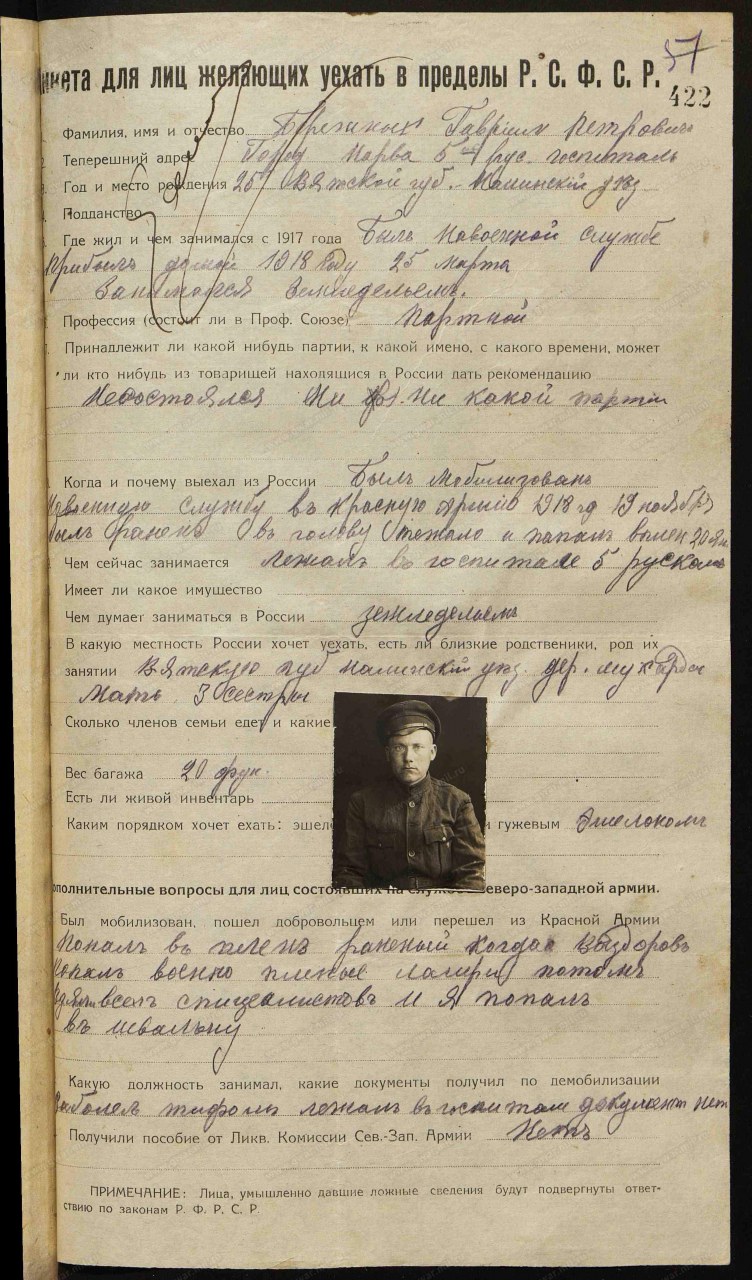 57
422
нкета для лиц желающих уехать в пределы Р. С. Ф. С. Р.
Фамилия, имя и отчество Гавриил Петровичъ
Теперешний адрес Город Нарва 5 рус. госпиталь
Год и место рождения 25 Вятской губ. Малмижскій уезд
Подданство
Где жил и чем занимался с 1917 года Былъ Навоенной службе
Прибылъ домой 1918 Году 25 марта
Занимался Земледельемъ.
Профессия (состоит ли в Проф. Союзе) Портной
Принадлежит ли какой нибудь партии, к какой имено, с какого времени, может
ли кто нибудь из товарищей находящися в России дать рекомендацию
Несостоялся Ни Ни какой партіи
Когда и почему выехал из России Былъ мобилизованъ
Навоенную службу въ Красную армію 1918 год 19 ноябръ
былъ раненъ въ голову тежало и попалъ вплен 20
Чем сейчас занимается лежалъ въ госпитале 5 рускомъ
Имеет ли какое имущество
Чем думает заниматься в России земледельемъ
В какую местность России хочет уехать, есть ли близкие родственики, род их
занятии Вятскую губ уезд. дер.
Мать 3 Сестры
Сколько членов семьи едет и какие
Вес багажа 20 фун.
Есть ли живой инвентарь
Каким порядком хочет ехать: эшел и гужевым Эшелономъ
ополнительные вопросы для лиц состоявших на службе северо-западной армии.
Был мобилизован, пошел добровольцем или перешел из Красной Армии
Попалъ въ пленъ раненый когда Выздоровъ
Попалъ военно пленые лагери потомъ
всехъ спицеалистовъ И Я попалъ
въ швальну
Какую должность занимал, какие документы получил по демобилизации
Заболел тифомъ лежалъ въ госпитали документ нет
Получили пособие от Ликв. Комиссии Сев.-Зап. Армии Нетъ
ПРИМЕЧАНИЕ: Лица, умышленно давшие ложные сведения будут подвергнуты ответ-
ствию по законам Р. Ф. Р. С. Р